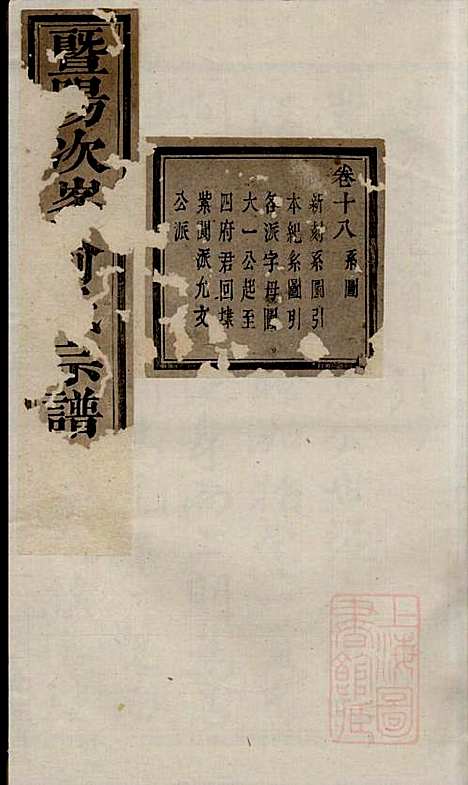 卷十八 系圖
新刻系圖引
本紀系圖引
各派字母圖
大一公起至
四府君回墣
紫閬派允文
公派
暨陽次峯 宗譜
上海圖書館藏